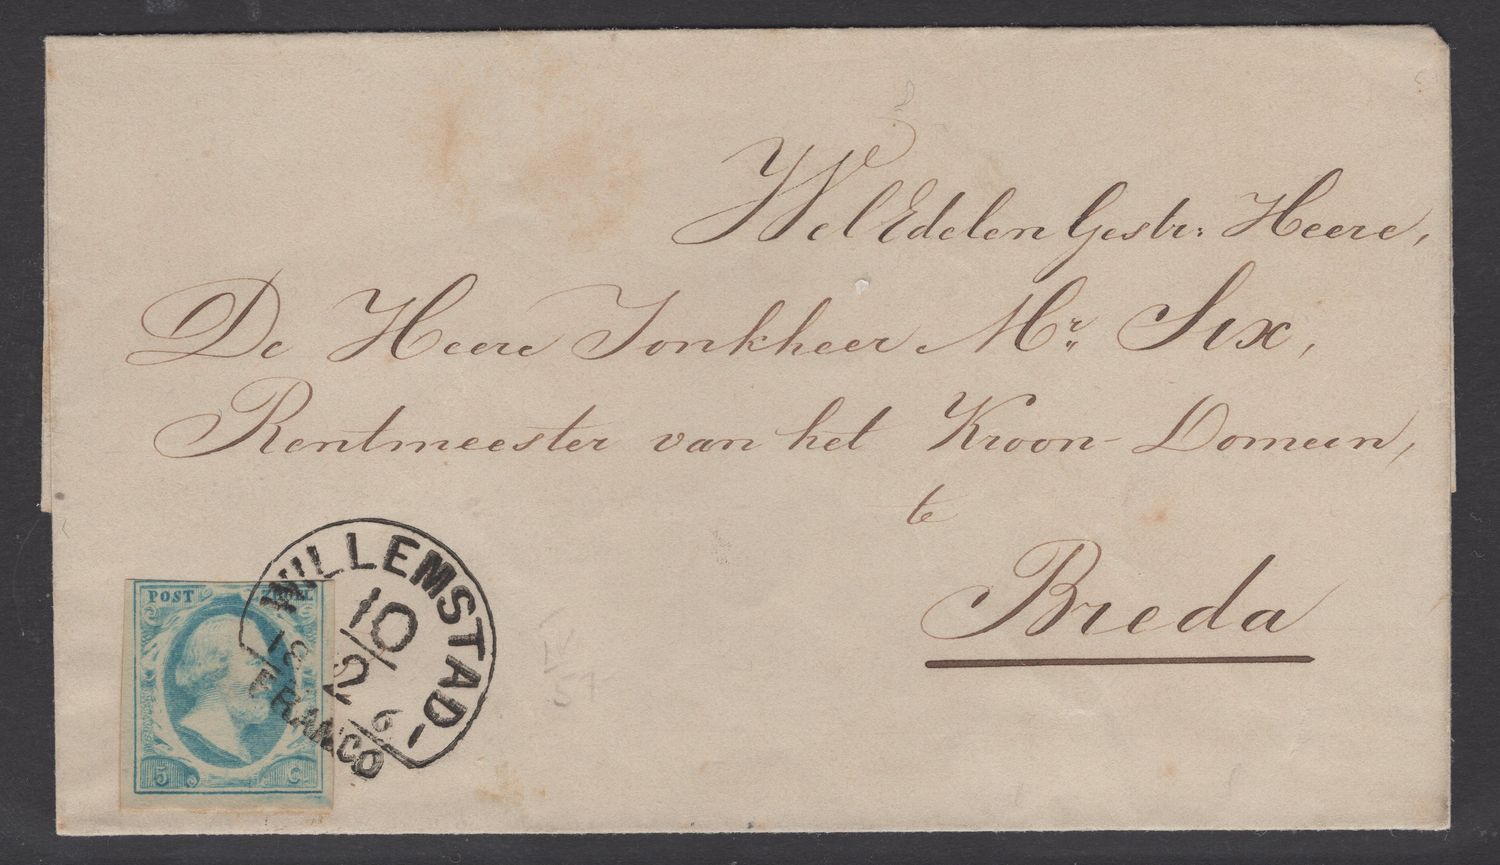 WelEdelen Gestr: Heere,
De Heere Jonkheer Mr. Six,
Rentmeester van het Kroon-Domein,
te
Breda
WILLEMSTAD-
10
2
18 6
FRANCO
POST ZEGEL
5 C.